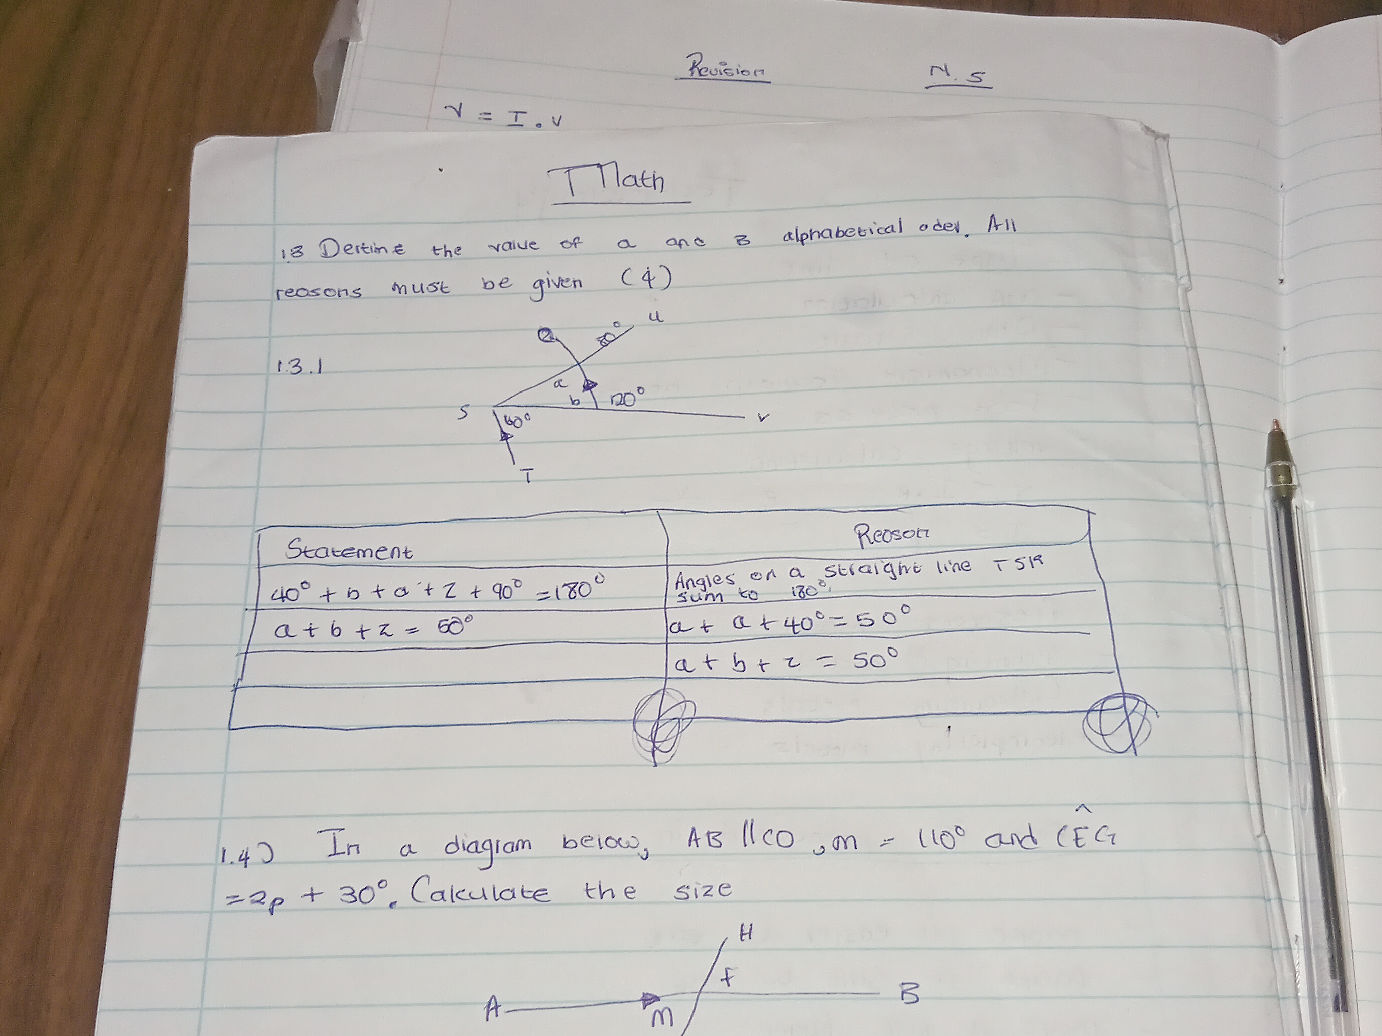 Revision
N. S
V = I . V
Math
1.3 Dertine the value of a and B alphabetical oder. All
reasons must be given (4)
1.3.1
Q
80°
U
a
S
b
120°
V
60°
T
Statement
Reoson
40° + b + a + z + 90° = 180°
Angles on a straight line TSR
sum to 180°.
a + b + z = 50°
a + a + 40° = 50°
a + b + z = 50°
1.4) In a diagram below, AB || CD, m = 110° and CÊG
= 2p + 30°. Calculate the size
H
F
A
B
M